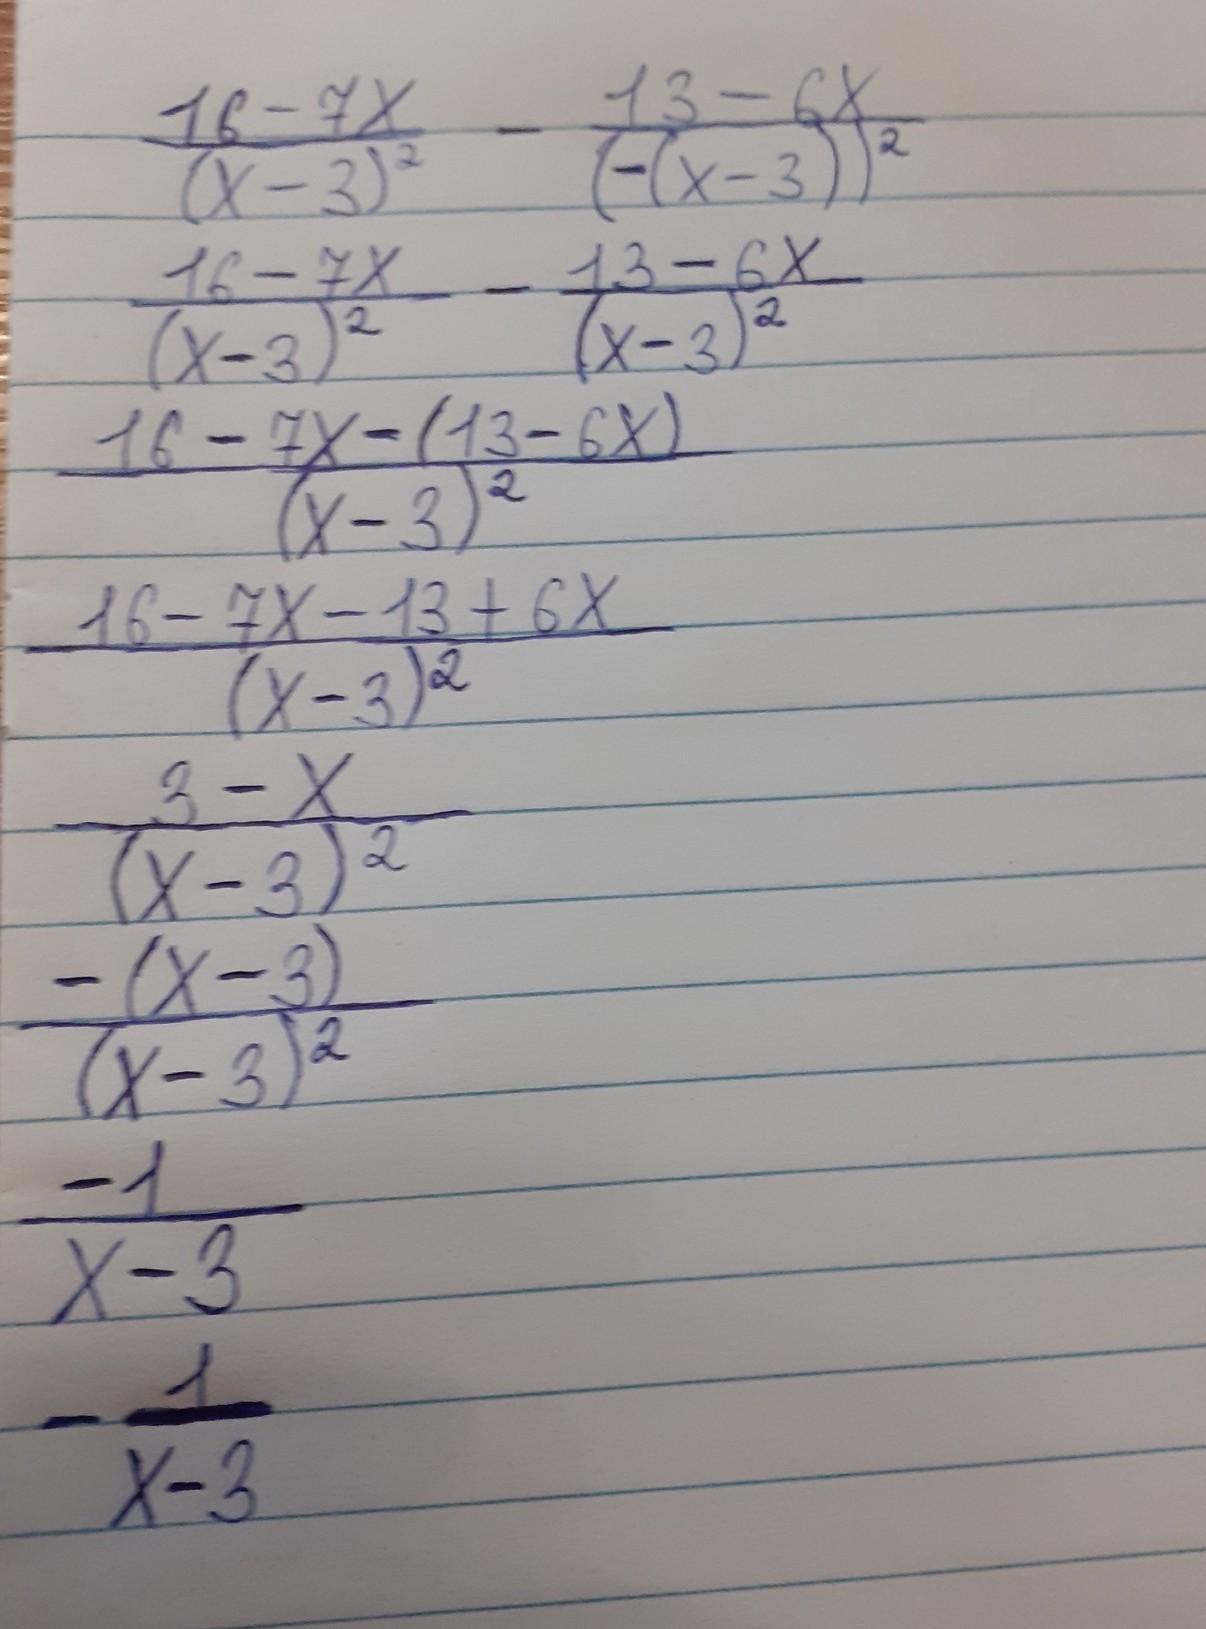 16-7x/(x-3)² - 13-6x/(-(x-3))²
16-7x/(x-3)² - 13-6x/(x-3)²
16-7x-(13-6x)/(x-3)²
16-7x-13+6x/(x-3)²
3-x/(x-3)²
-(x-3)/(x-3)²
-1/x-3
- 1/x-3